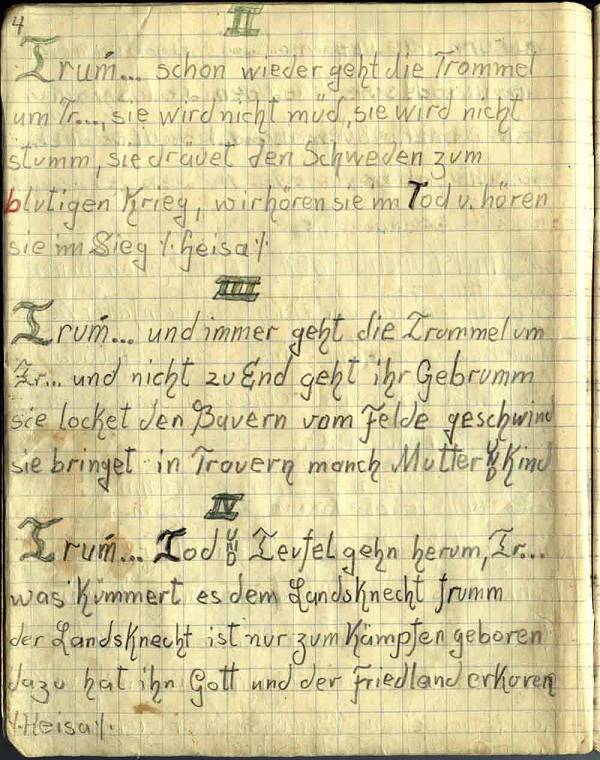 4
II
Trum... schon wieder geht die Trommel
um Tr..., sie wird nicht müd, sie wird nicht
stumm, sie dräuet den Schweden zum
blutigen Krieg, wir hören sie im Tod u. hören
sie im Sieg ٪ Heisa ٪
III
Trum... und immer geht die Trommel um
Tr... und nicht zu End geht ihr Gebrumm
sie locket den Bauern vom Felde geschwind
sie bringet in Trauern manch Mutter u Kind
IV
Trum... Tod UND Teufel gehn herum, Tr...
was Kümmert es dem LandsKnecht frumm
der LandsKnecht ist nur zum Kämpfen geboren
dazu hat ihn Gott und der Friedland erkoren
٪ Heisa ٪